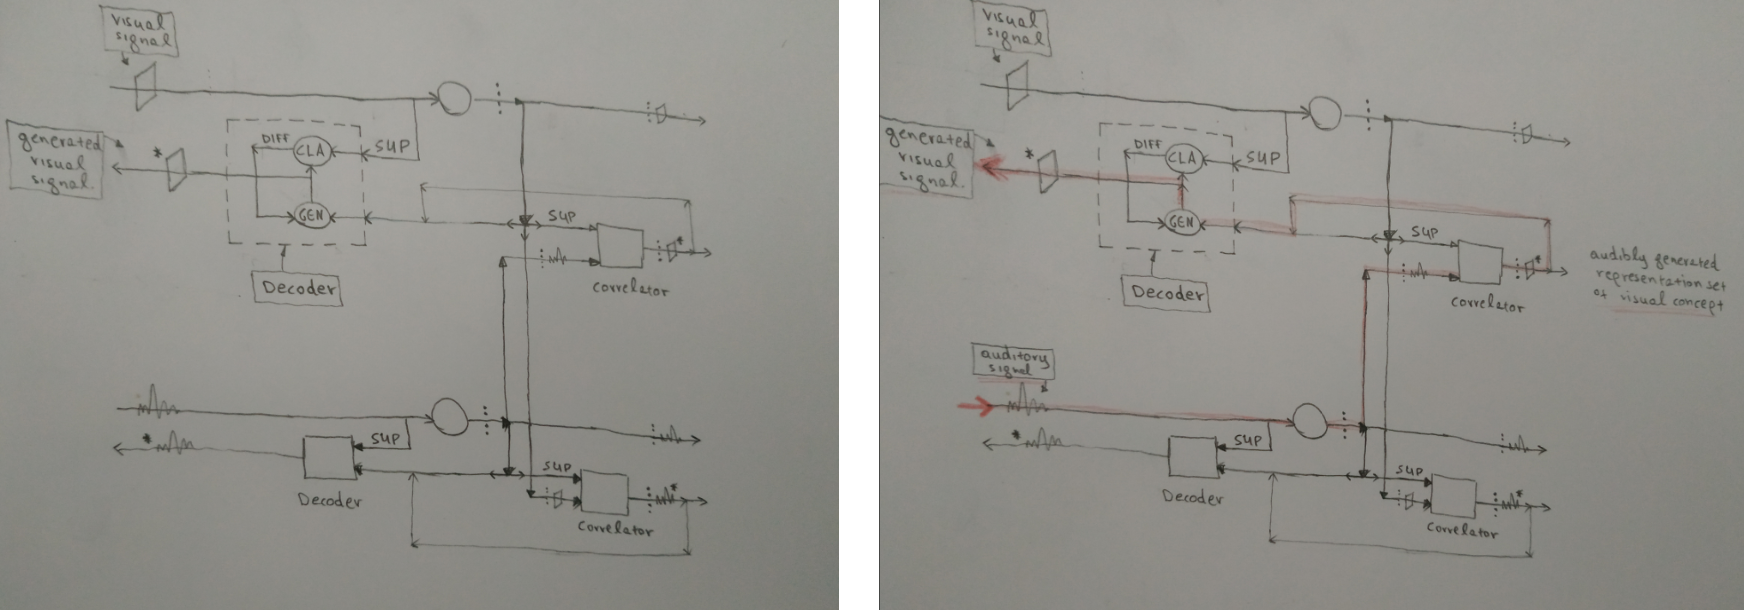 visual
signal
generated
visual
signal.
*
DIFF
CLA
SUP
GEN
SUP
*
correlator
Decoder
SUP
*
Decoder
SUP
*
correlator
visual
signal
generated
visual
signal.
*
DIFF
CLA
SUP
GEN
SUP
*
correlator
Decoder
audibly generated
representation set
of visual concept
auditory
signal
SUP
*
Decoder
SUP
*
correlator